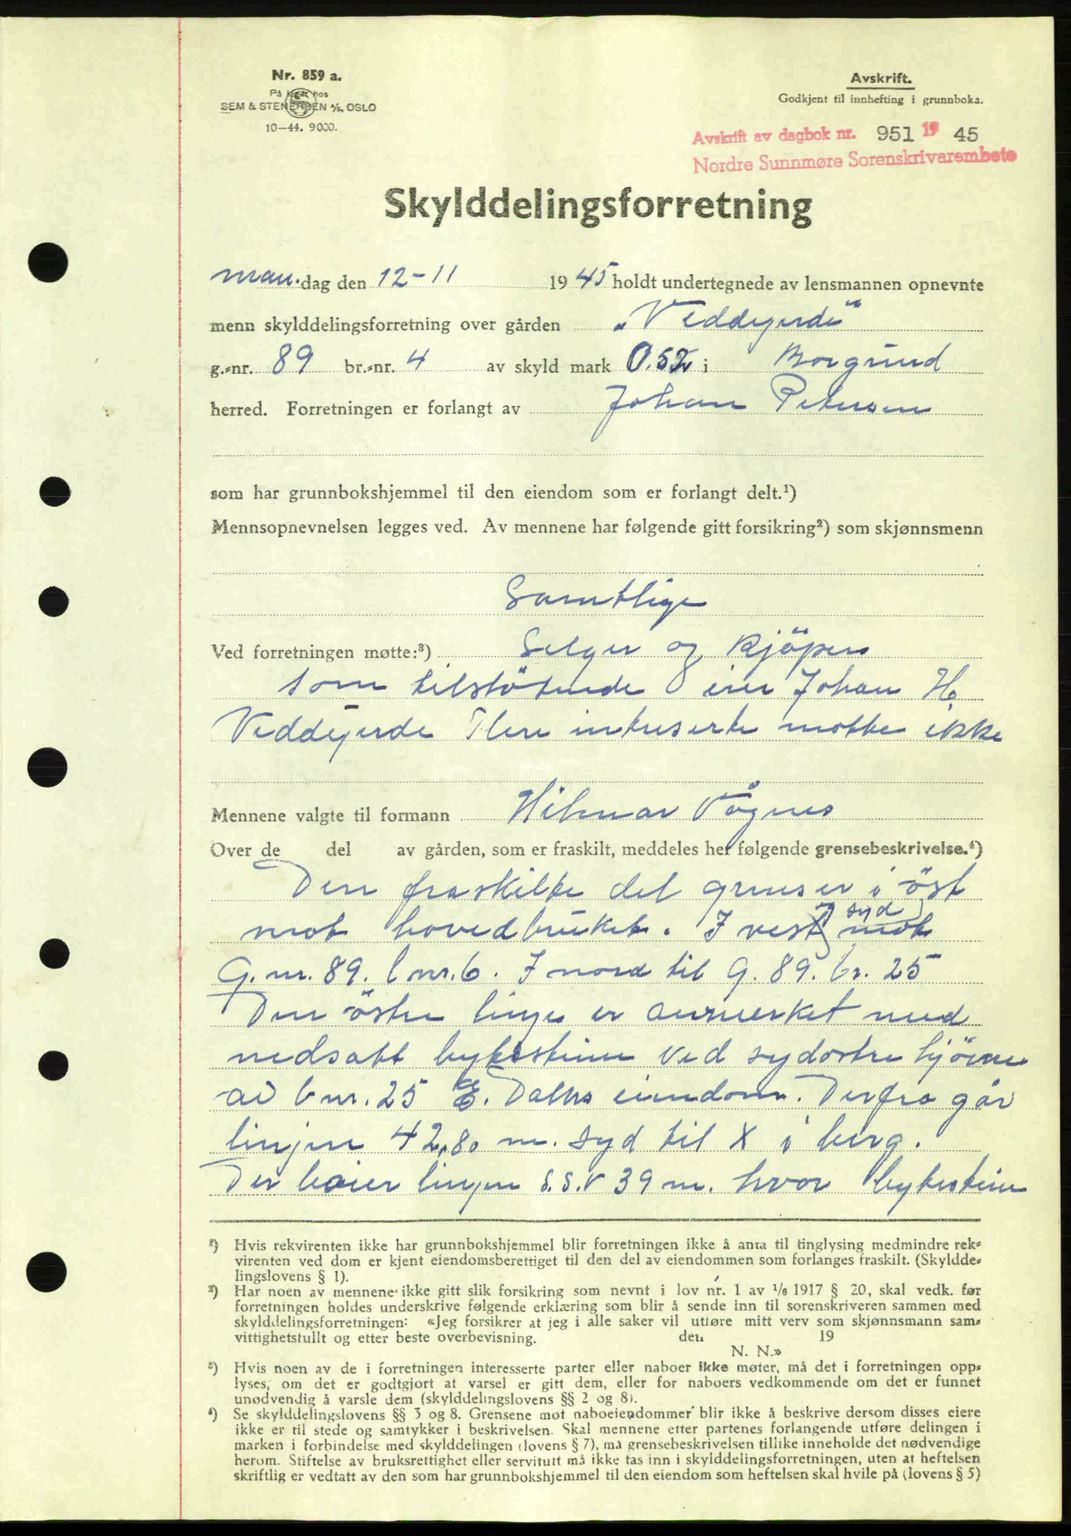 Nr. 859 a.
På lager hos
SEM & STENERSEN A/S, OSLO
10-44. 9000.
Avskrift.
Godkjent til innhefting i grunnboka.
Avskrift av dagbok nr. 951 19 45
Nordre Sunnmøre Sorenskrivarembete
Skylddelingsforretning
man. dag den 12-11 1945 holdt undertegnede av lensmannen opnevnte
menn skylddelingsforretning over gården „Veddegjerde"
g.-nr. 89 br.-nr. 4 av skyld mark 0.52 i Borgund
herred. Forretningen er forlangt av Johan Petersen
som har grunnbokshjemmel til den eiendom som er forlangt delt.¹)
Mennsopnevnelsen legges ved. Av mennene har følgende gitt forsikring²) som skjønnsmenn
Samtlige
Ved forretningen møtte:³) Selger og kjöper
som tilstötende eier Johan H
Veddegjerde Flere intreserte møtte ikke
Mennene valgte til formann Hilmar Vågnes
Over de del av gården, som er fraskilt, meddeles her følgende grensebeskrivelse.⁴)
Den fraskilte del grenser i öst
mot hovedbruket. I vest syd mot
G. nr. 89. b nr. 6. I nord til G. 89. br. 25
Den östre linje er avmerket med
nedsatt bytestein ved sydostre hjörne
av b nr. 25 E. Dalhs eiendom. Derfra går
linjen 42,80 m. syd til X i berg.
Der bøier linjen S.S.V 39 m. hvor bytestein
²) Hvis rekvirenten ikke har grunnbokshjemmel blir forretningen ikke å anta til tinglysing medmindre rek-
virenten ved dom er kjent eiendomsberettiget til den del av eiendommen som forlanges fraskilt. (Skyldde-
lingslovens § 1).
²) Har noen av mennene ikke gitt slik forsikring som nevnt i lov nr. 1 av 1/6 1917 § 20, skal vedk. før
forretningen holdes underskrive følgende erklæring som blir å sende inn til sorenskriveren sammen med
skylddelingsforretningen: «Jeg forsikrer at jeg i alle saker vil utføre mitt verv som skjønnsmann sam-
vittighetsfullt og etter beste overbevisning. den 19
N. N.»
³) Hvis noen av de i forretningen interesserte parter eller naboer ikke møter, må det i forretningen opp-
lyses, om det er godtgjort at varsel er gitt dem, eller for naboers vedkommende om det er funnet
unødvendig å varsle dem (skylddelingslovens §§ 2 og 8).
⁴) Se skylddelingslovens §§ 3 og 8. Grensene mot naboeiendommer blir ikke å beskrive dersom disses eiere
ikke er til stede og samtykker i beskrivelsen. Skal mennene etter partenes forlangende utføre delingen i
marken i forbindelse med skylddelingen (lovens § 7), må grensebeskrivelsen tillike inneholde det nødvendige
herom. Stiftelse av bruksrettighet eller servitutt må ikke tas inn i skylddelingsforretningen, uten at heftelsen
skriftlig er vedtatt av den som har grunnbokshjemmel til den eiendom som heftelsen skal hvile på (lovens § 5)